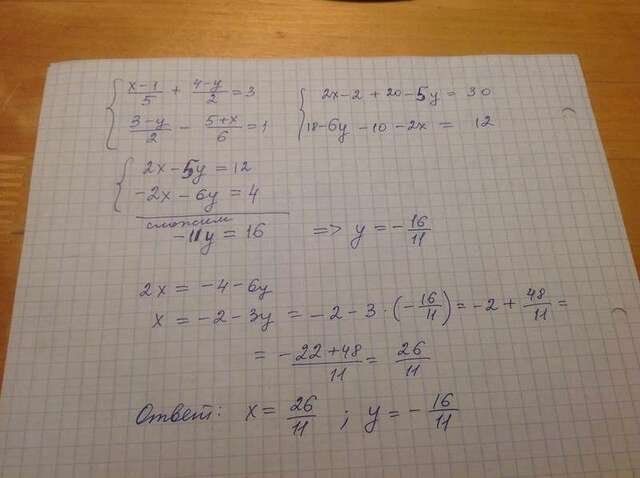 { (x-1)/5 + (4-y)/2 = 3
(3-y)/2 - (5+x)/6 = 1
{ 2x-2+20-5y = 30
18-6y-10-2x = 12
{ 2x-5y = 12
-2x-6y = 4
сложим
-11y = 16 => y = -16/11
2x = -4-6y
x = -2-3y = -2-3·(-16/11) = -2+48/11 =
= (-22+48)/11 = 26/11
Ответ: x = 26/11 ; y = -16/11